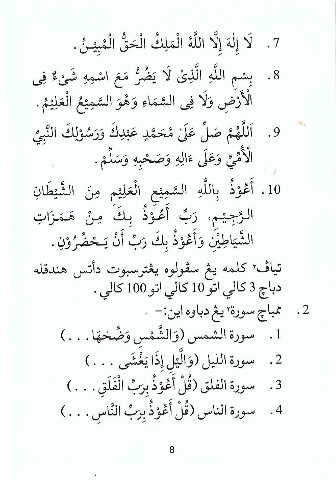 7. لَا إِلٰهَ إِلَّا اللهُ الْمَلِكُ الْحَقُّ الْمُبِيْنُ.
8. بِسْمِ اللهِ الَّذِىْ لَا يَضُرُّ مَعَ اسْمِهِ شَىْءٌ فِى
الْأَرْضِ وَلَا فِى السَّمَاءِ وَهُوَ السَّمِيْعُ الْعَلِيْمُ.
9. اَللّٰهُمَّ صَلِّ عَلَىٰ مُحَمَّدٍ عَبْدِكَ وَرَسُوْلِكَ النَّبِيِّ
الْأُمِّيِّ وَعَلَى ءَالِهِ وَصَحْبِهِ وَسَلِّمْ.
10. أَعُوْذُ بِاللهِ السَّمِيْعِ الْعَلِيْمِ مِنَ الشَّيْطَانِ
الرَّجِيْمِ، رَبِّ أَعُوْذُ بِكَ مِنْ هَمَزَاتِ
الشَّيَاطِيْنِ وَأَعُوْذُ بِكَ رَبِّ أَنْ يَحْضُرُوْنِ.
تياڤ٢ كلمه يڠ سڤولوه يڠترسبوت دأتس هندقله
دباچ 3 كالي اتو 10 كالي اتو 100 كالي.
2. ممباچ سورة٢ يڠ دباوه اين:-
1. سورة الشمس (وَالشَّمْسِ وَضُحَهَا...)
2. سورة الليل (وَالَّيْلِ إِذَا يَغْشَى...)
3. سورة الفلق (قُلْ أَعُوْذُ بِرَبِّ الْفَلَقِ...)
4. سورة الناس (قُلْ أَعُوْذُ بِرَبِّ النَّاسِ...)
8